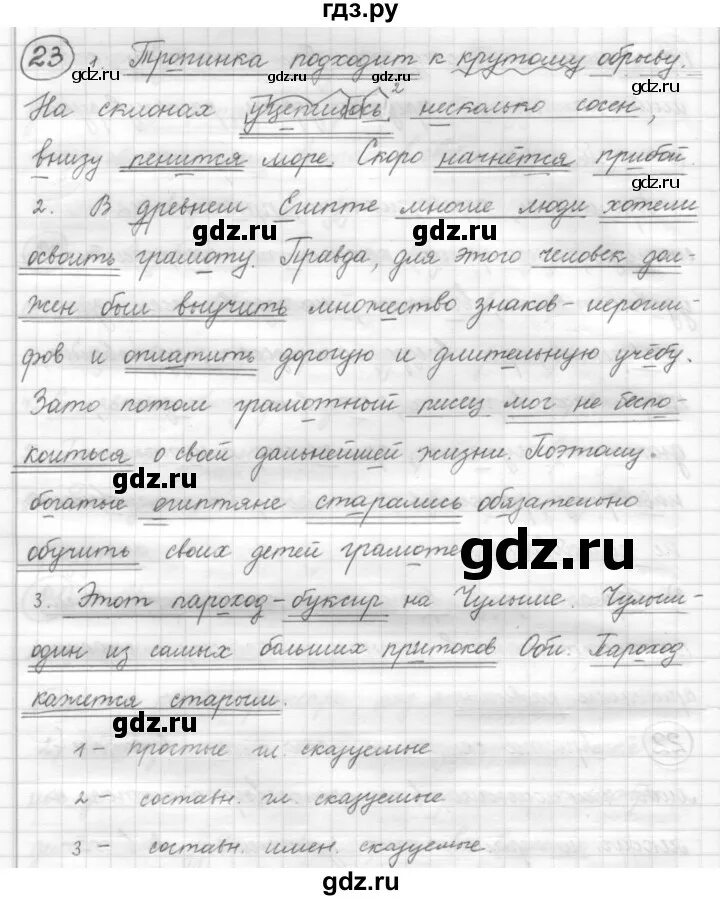 гдз.ру
23 1. Тропинка подходит к крутому обрыву.
gdz.ru gdz.ru
На склонах уцепилось 2 несколько сосен,
внизу пенится море. Скоро начнётся прибой.
gdz.ru gdz.ru
2. В древнем Египте многие люди хотели
gdz.ru gdz.ru
освоить грамоту. Правда, для этого человек дол-
жен был выучить множество знаков - иерогли-
фов и оплатить дорогую и длительную учёбу.
Зато потом грамотный писец мог не беспо-
коиться о своей дальнейшей жизни. Поэтому
gdz.ru
богатые египтяне старались обязательно
обучить своих детей грамоте
gdz.ru
3. Этот пароход-буксир на Чулыме. Чулым-
один из самых больших притоков Оби. Пароход
кажется старым.
gdz.ru
1 - простые гл. сказуемые
22
2 - составн. гл. сказуемые
3 - составн. имен. сказуемые.
gdz.ru gdz.ru
гдз.ру